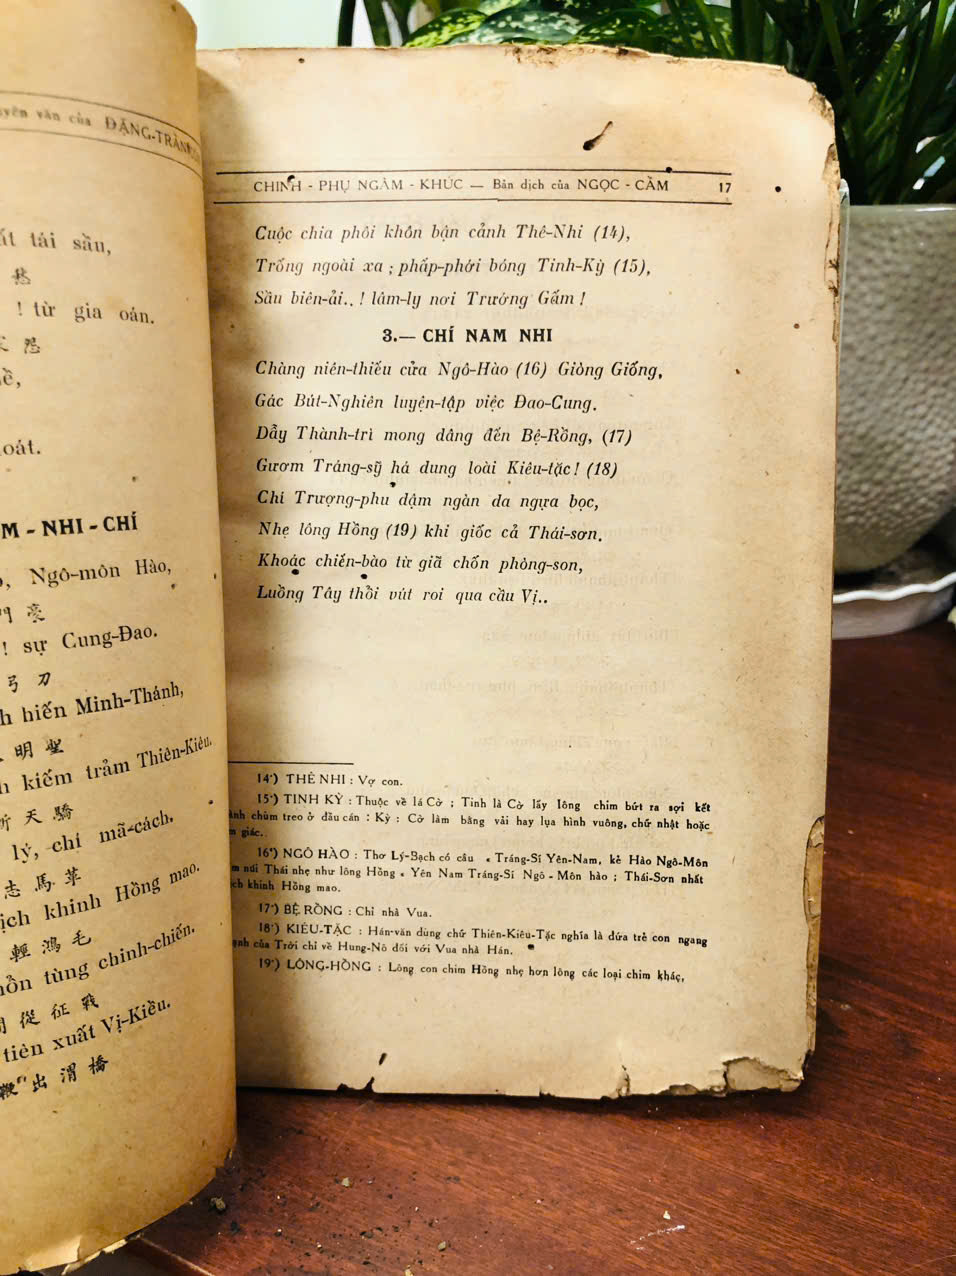 văn của ĐẶNG-TRẦN
tái sầu,
愁
! từ gia oán.
怨
oát.
M - NHI - CHÍ
Ngô-môn Hào,
門 豪
! sự Cung-Đao.
弓 刀
hiến Minh-Thánh,
明 聖
kiếm trảm Thiên-Kiêu.
斬 天 驕
lý, chí mã-cách.
志 馬 革
khinh Hồng mao.
輕 鴻 毛
tùng chinh-chiến.
從 征 戰
tiên xuất Vị-Kiều.
鞭 出 渭 橋
CHINH - PHỤ NGÂM - KHÚC — Bản dịch của NGỌC - CẦM 17
Cuộc chia phôi khôn bận cảnh Thê-Nhi (14),
Trống ngoài xa ; phấp-phới bóng Tinh-Kỳ (15),
Sầu biên-ải..! lâm-ly nơi Trướng Gấm !
3.— CHÍ NAM NHI
Chàng niên-thiếu cửa Ngô-Hào (16) Giòng Giống,
Gác Bút-Nghiên luyện-tập việc Đao-Cung.
Dẫy Thành-trì mong dâng đến Bệ-Rồng, (17)
Gươm Tráng-sỹ há dung loài Kiêu-tặc! (18)
Chí Trượng-phu dậm ngàn da ngựa bọc,
Nhẹ lông Hồng (19) khi giốc cả Thái-sơn.
Khoác chiến-bào từ giã chốn phòng-son,
Luồng Tây thổi vút roi qua cầu Vị..
14°) THÊ NHI : Vợ con.
15°) TINH KỲ : Thuộc về lá Cờ ; Tinh là Cờ lấy lông chim bứt ra sợi kết
chùm treo ở đầu cán : Kỳ : Cờ làm bằng vải hay lụa hình vuông, chữ nhật hoặc
giác.
16°) NGÔ HÀO : Thơ Lý-Bạch có câu « Tráng-Sí Yên-Nam, kẻ Hào Ngô-Môn
núi Thái nhẹ như lông Hồng « Yên Nam Tráng-Sí Ngô - Môn hào ; Thái-Sơn nhất
khinh Hồng mao.
17°) BỆ RỒNG : Chỉ nhà Vua.
18°) KIÊU-TẶC : Hán-văn dùng chữ Thiên-Kiêu-Tặc nghĩa là đứa trẻ con ngang
của Trời chỉ về Hung-Nô đối với Vua nhà Hán.
19°) LÔNG-HỒNG : Lông con chim Hồng nhẹ hơn lông các loại chim khác,